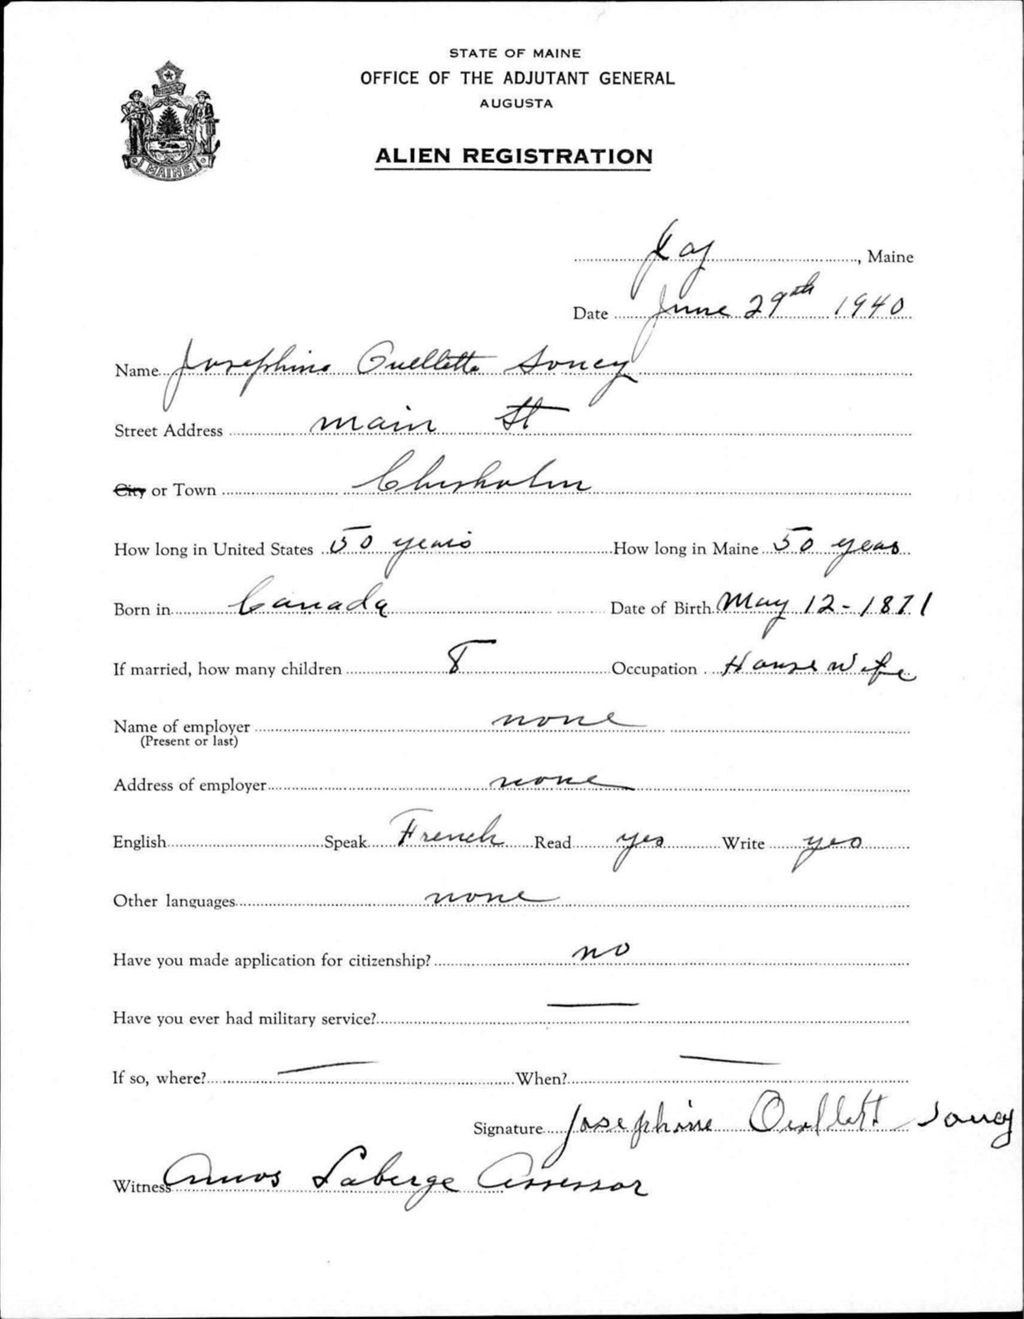 STATE OF MAINE
OFFICE OF THE ADJUTANT GENERAL
AUGUSTA
ALIEN REGISTRATION
MAINE
Jay, Maine
Date June 29th 1940
Name Josephine Ouellette Soucy
Street Address main St
City or Town Chisholm
How long in United States 50 years How long in Maine 50 years
Born in Canada Date of Birth May 12 - 1871
If married, how many children 8 Occupation House Wife
Name of employer none
(Present or last)
Address of employer none
English Speak French Read yes Write yes
Other languages none
Have you made application for citizenship? no
Have you ever had military service? —
If so, where? — When? —
Signature Josephine Ouellett Soucy
Witness Amos Laberge Assessor